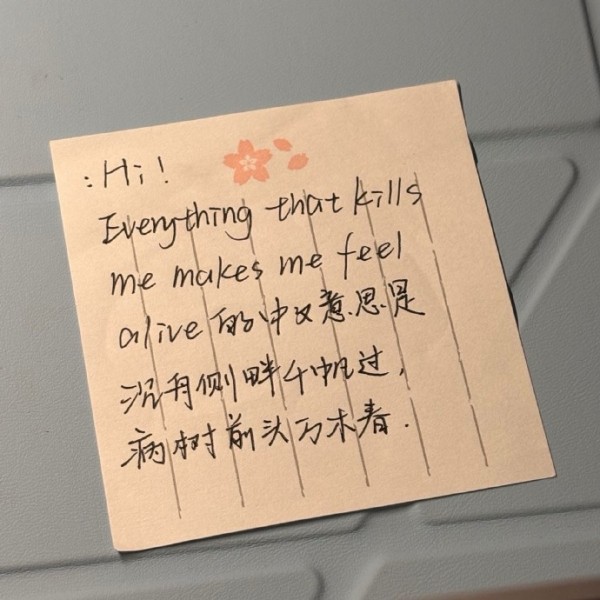 :Hi!
Everything that kills
me makes me feel
alive 的中文意思是
沉舟侧畔千帆过，
病树前头万木春.